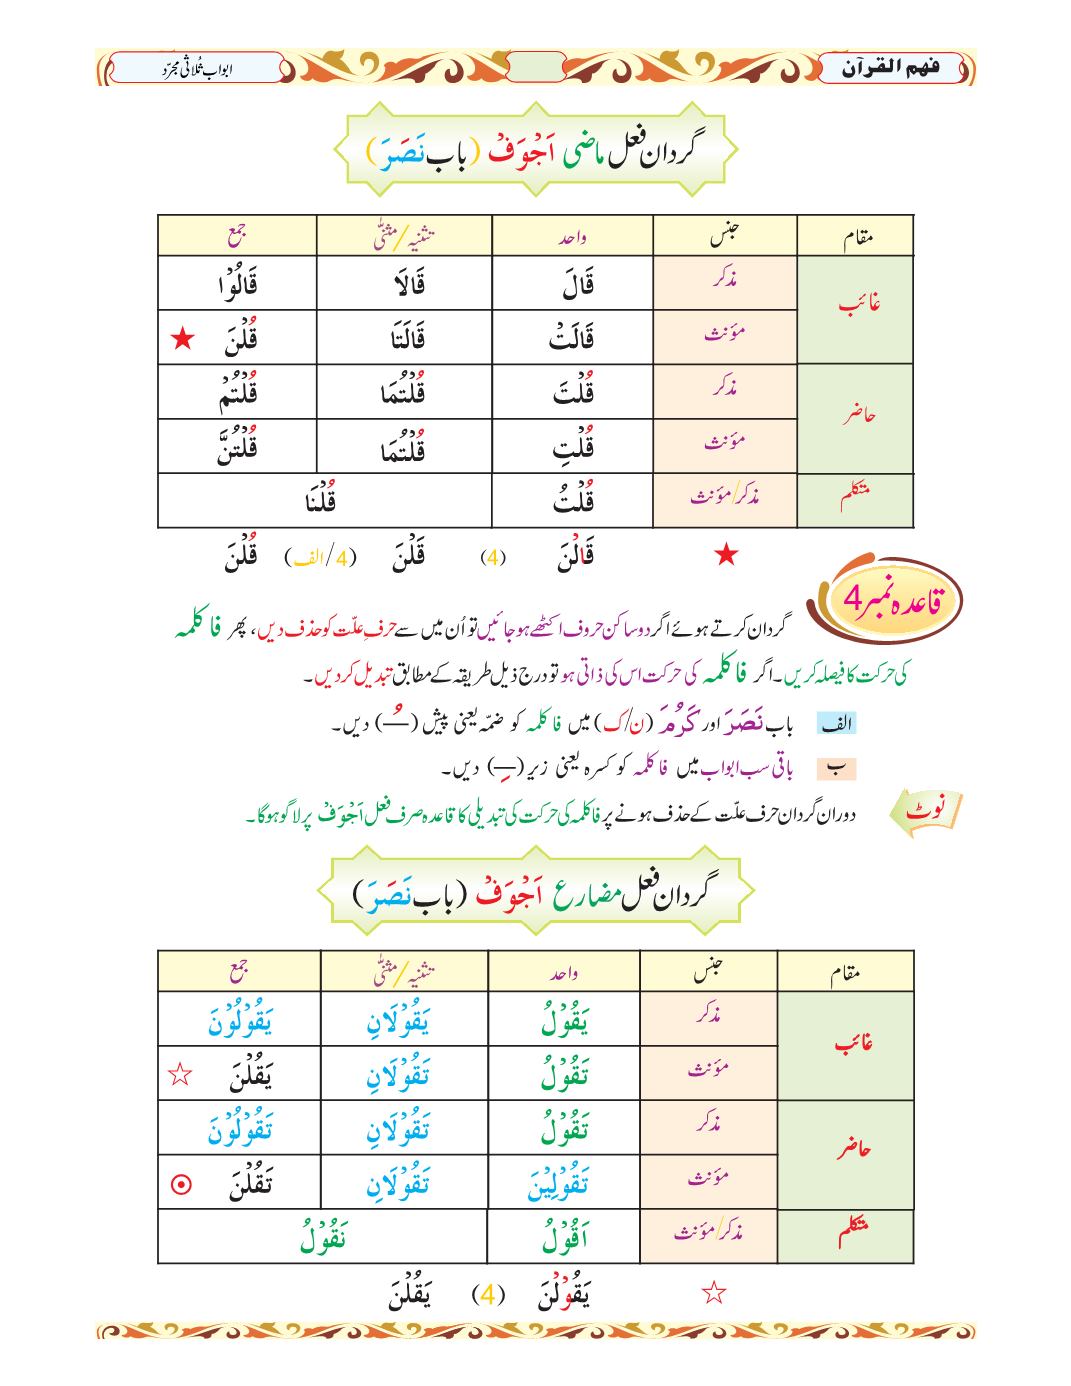 فہم القرآن
ابواب ثلاثی مجرّد
گردان فعل ماضی اَجْوَفْ (باب نَصَرَ)
مقام جنس واحد تثنیہ/مثنّٰی جمع
غائب مذکر قَالَ قَالَا قَالُوْا
مؤنث قَالَتْ قَالَتَا قُلْنَ ★
حاضر مذکر قُلْتَ قُلْتُمَا قُلْتُمْ
مؤنث قُلْتِ قُلْتُمَا قُلْتُنَّ
متکلم مذکر/مؤنث قُلْتُ قُلْنَا
★ قَالْنَ (4) قَلْنَ (4/الف) قُلْنَ
قاعدہ نمبر 4
گردان کرتے ہوئے اگر دو ساکن حروف اکٹھے ہو جائیں تو اُن میں سے حرفِ علّت کو حذف دیں، پھر فا کلمہ
کی حرکت کا فیصلہ کریں۔ اگر فا کلمہ کی حرکت اس کی ذاتی ہو تو درج ذیل طریقہ کے مطابق تبدیل کر دیں۔
الف باب نَصَرَ اور کَرُمَ (ن/ک) میں فا کلمہ کو ضمّہ یعنی پیش (ـُ) دیں۔
ب باقی سب ابواب میں فا کلمہ کو کسرہ یعنی زیر (ـِ) دیں۔
نوٹ دوران گردان حرف علّت کے حذف ہونے پر فا کلمہ کی حرکت کی تبدیلی کا قاعدہ صرف فعل اَجْوَفْ پر لاگو ہوگا۔
گردان فعل مضارع اَجْوَفْ (باب نَصَرَ)
مقام جنس واحد تثنیہ/مثنّٰی جمع
غائب مذکر یَقُوْلُ یَقُوْلَانِ یَقُوْلُوْنَ
مؤنث تَقُوْلُ تَقُوْلَانِ یَقُلْنَ ☆
حاضر مذکر تَقُوْلُ تَقُوْلَانِ تَقُوْلُوْنَ
مؤنث تَقُوْلِیْنَ تَقُوْلَانِ تَقُلْنَ ⊙
متکلم مذکر/مؤنث اَقُوْلُ نَقُوْلُ
☆ یَقُوْلْنَ (4) یَقُلْنَ